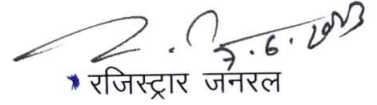 7.6.2013
रजिस्ट्रार जनरल